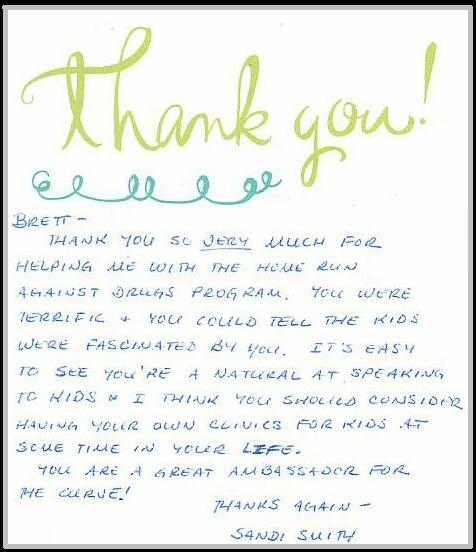 thank you!
BRETT -
THANK YOU SO VERY MUCH FOR
HELPING ME WITH THE HOME RUN
AGAINST DRUGS PROGRAM. YOU WERE
TERRIFIC & YOU COULD TELL THE KIDS
WERE FASCINATED BY YOU. IT'S EASY
TO SEE YOU'RE A NATURAL AT SPEAKING
TO KIDS & I THINK YOU SHOULD CONSIDER
HAVING YOUR OWN CLINICS FOR KIDS AT
SOME TIME IN YOUR LIFE.
YOU ARE A GREAT AMBASSADOR FOR
THE CURVE!
THANKS AGAIN -
SANDI SMITH